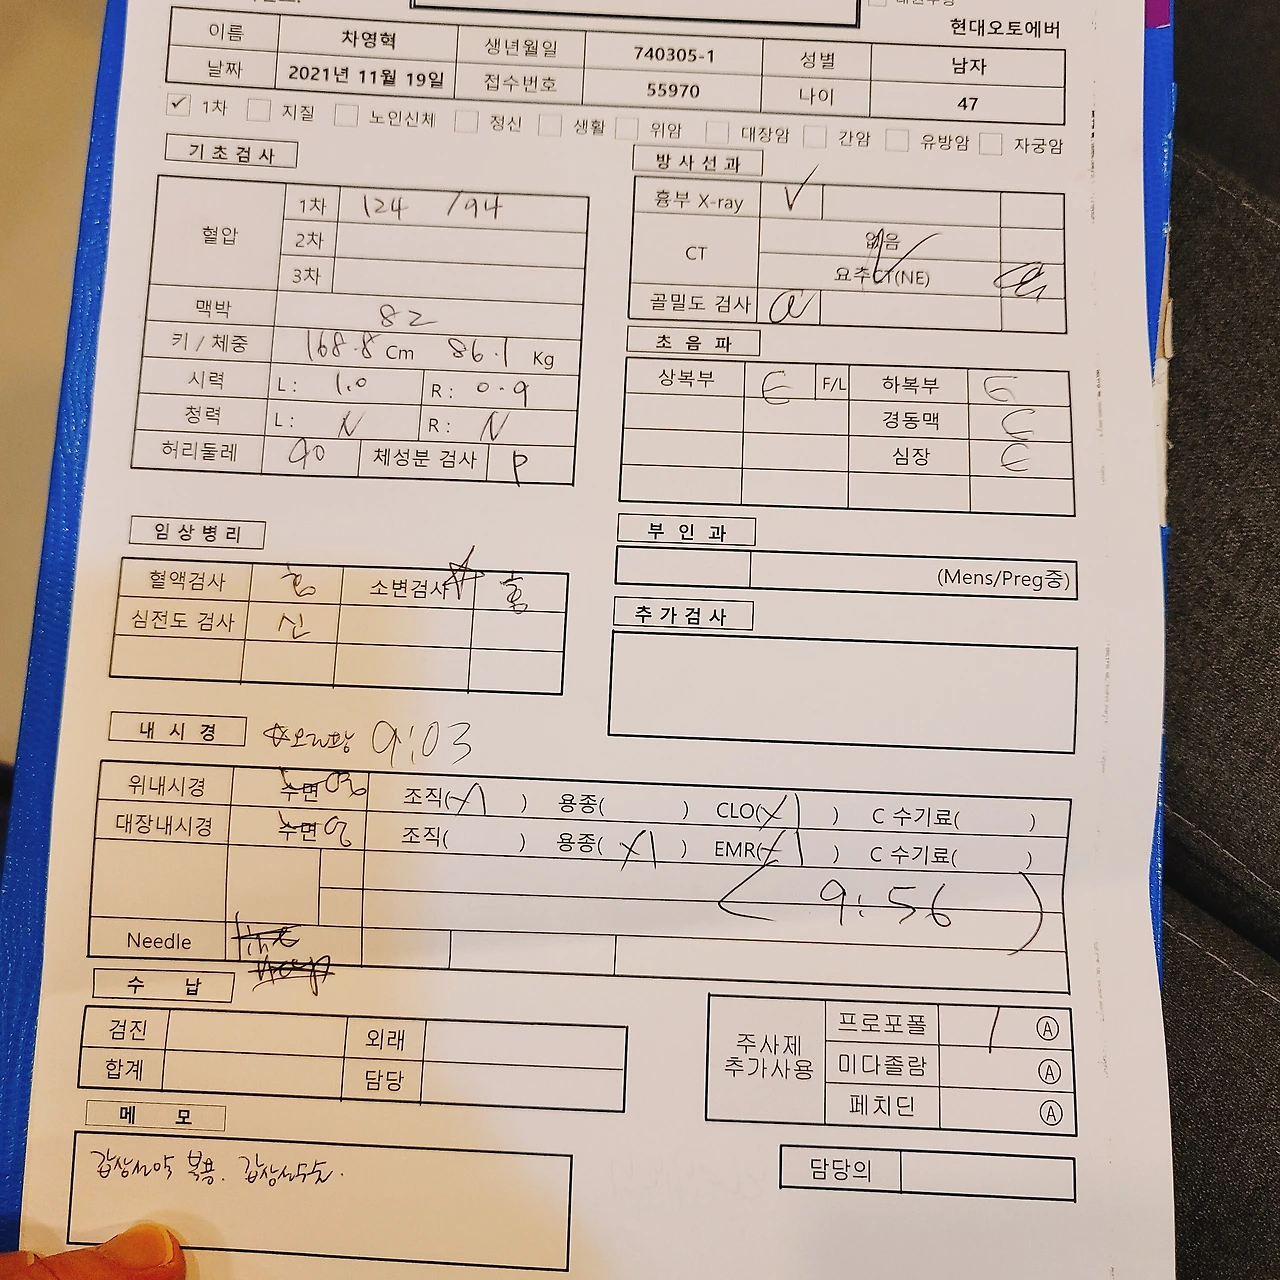 현대오토에버
이름 차영혁 생년월일 740305-1 성별 남자
날짜 2021년 11월 19일 접수번호 55970 나이 47
✓ 1차 지질 노인신체 정신 생활 위암 대장암 간암 유방암 자궁암
기초검사
혈압 1차 124 /94
2차
3차
맥박 82
키 / 체중 168.8 Cm 86.1 Kg
시력 L: 1.0 R: 0.9
청력 L: N R: N
허리둘레 90 체성분 검사 P
방사선과
흉부 X-ray ✓
CT 없음
요추CT(NE)
골밀도 검사 a
초음파
상복부 E F/L 하복부 E
경동맥 E
심장 E
임상병리
혈액검사 홍 소변검사 홍
심전도 검사 신
부인과
(Mens/Preg중)
추가검사
내시경 9:03
위내시경 수면 조직( ) 용종( ) CLO( ) C 수기료( )
대장내시경 수면 조직( ) 용종( ) EMR( ) C 수기료( )
(9:56)
Needle
수납
검진 외래
합계 담당
주사제 추가사용
프로포폴 1 Ⓐ
미다졸람 Ⓐ
페치딘 Ⓐ
메모
갑상선약 복용. 갑상선수술.
담당의